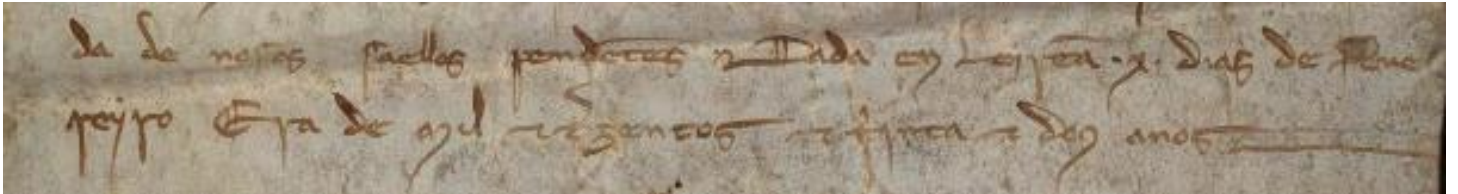 da de nosos saellos pendẽtes ⁊ Dada en Leirẽa .x. dias de Feue
reyro Era de mil ⁊ trezentos ⁊ trinta ⁊ dous anos